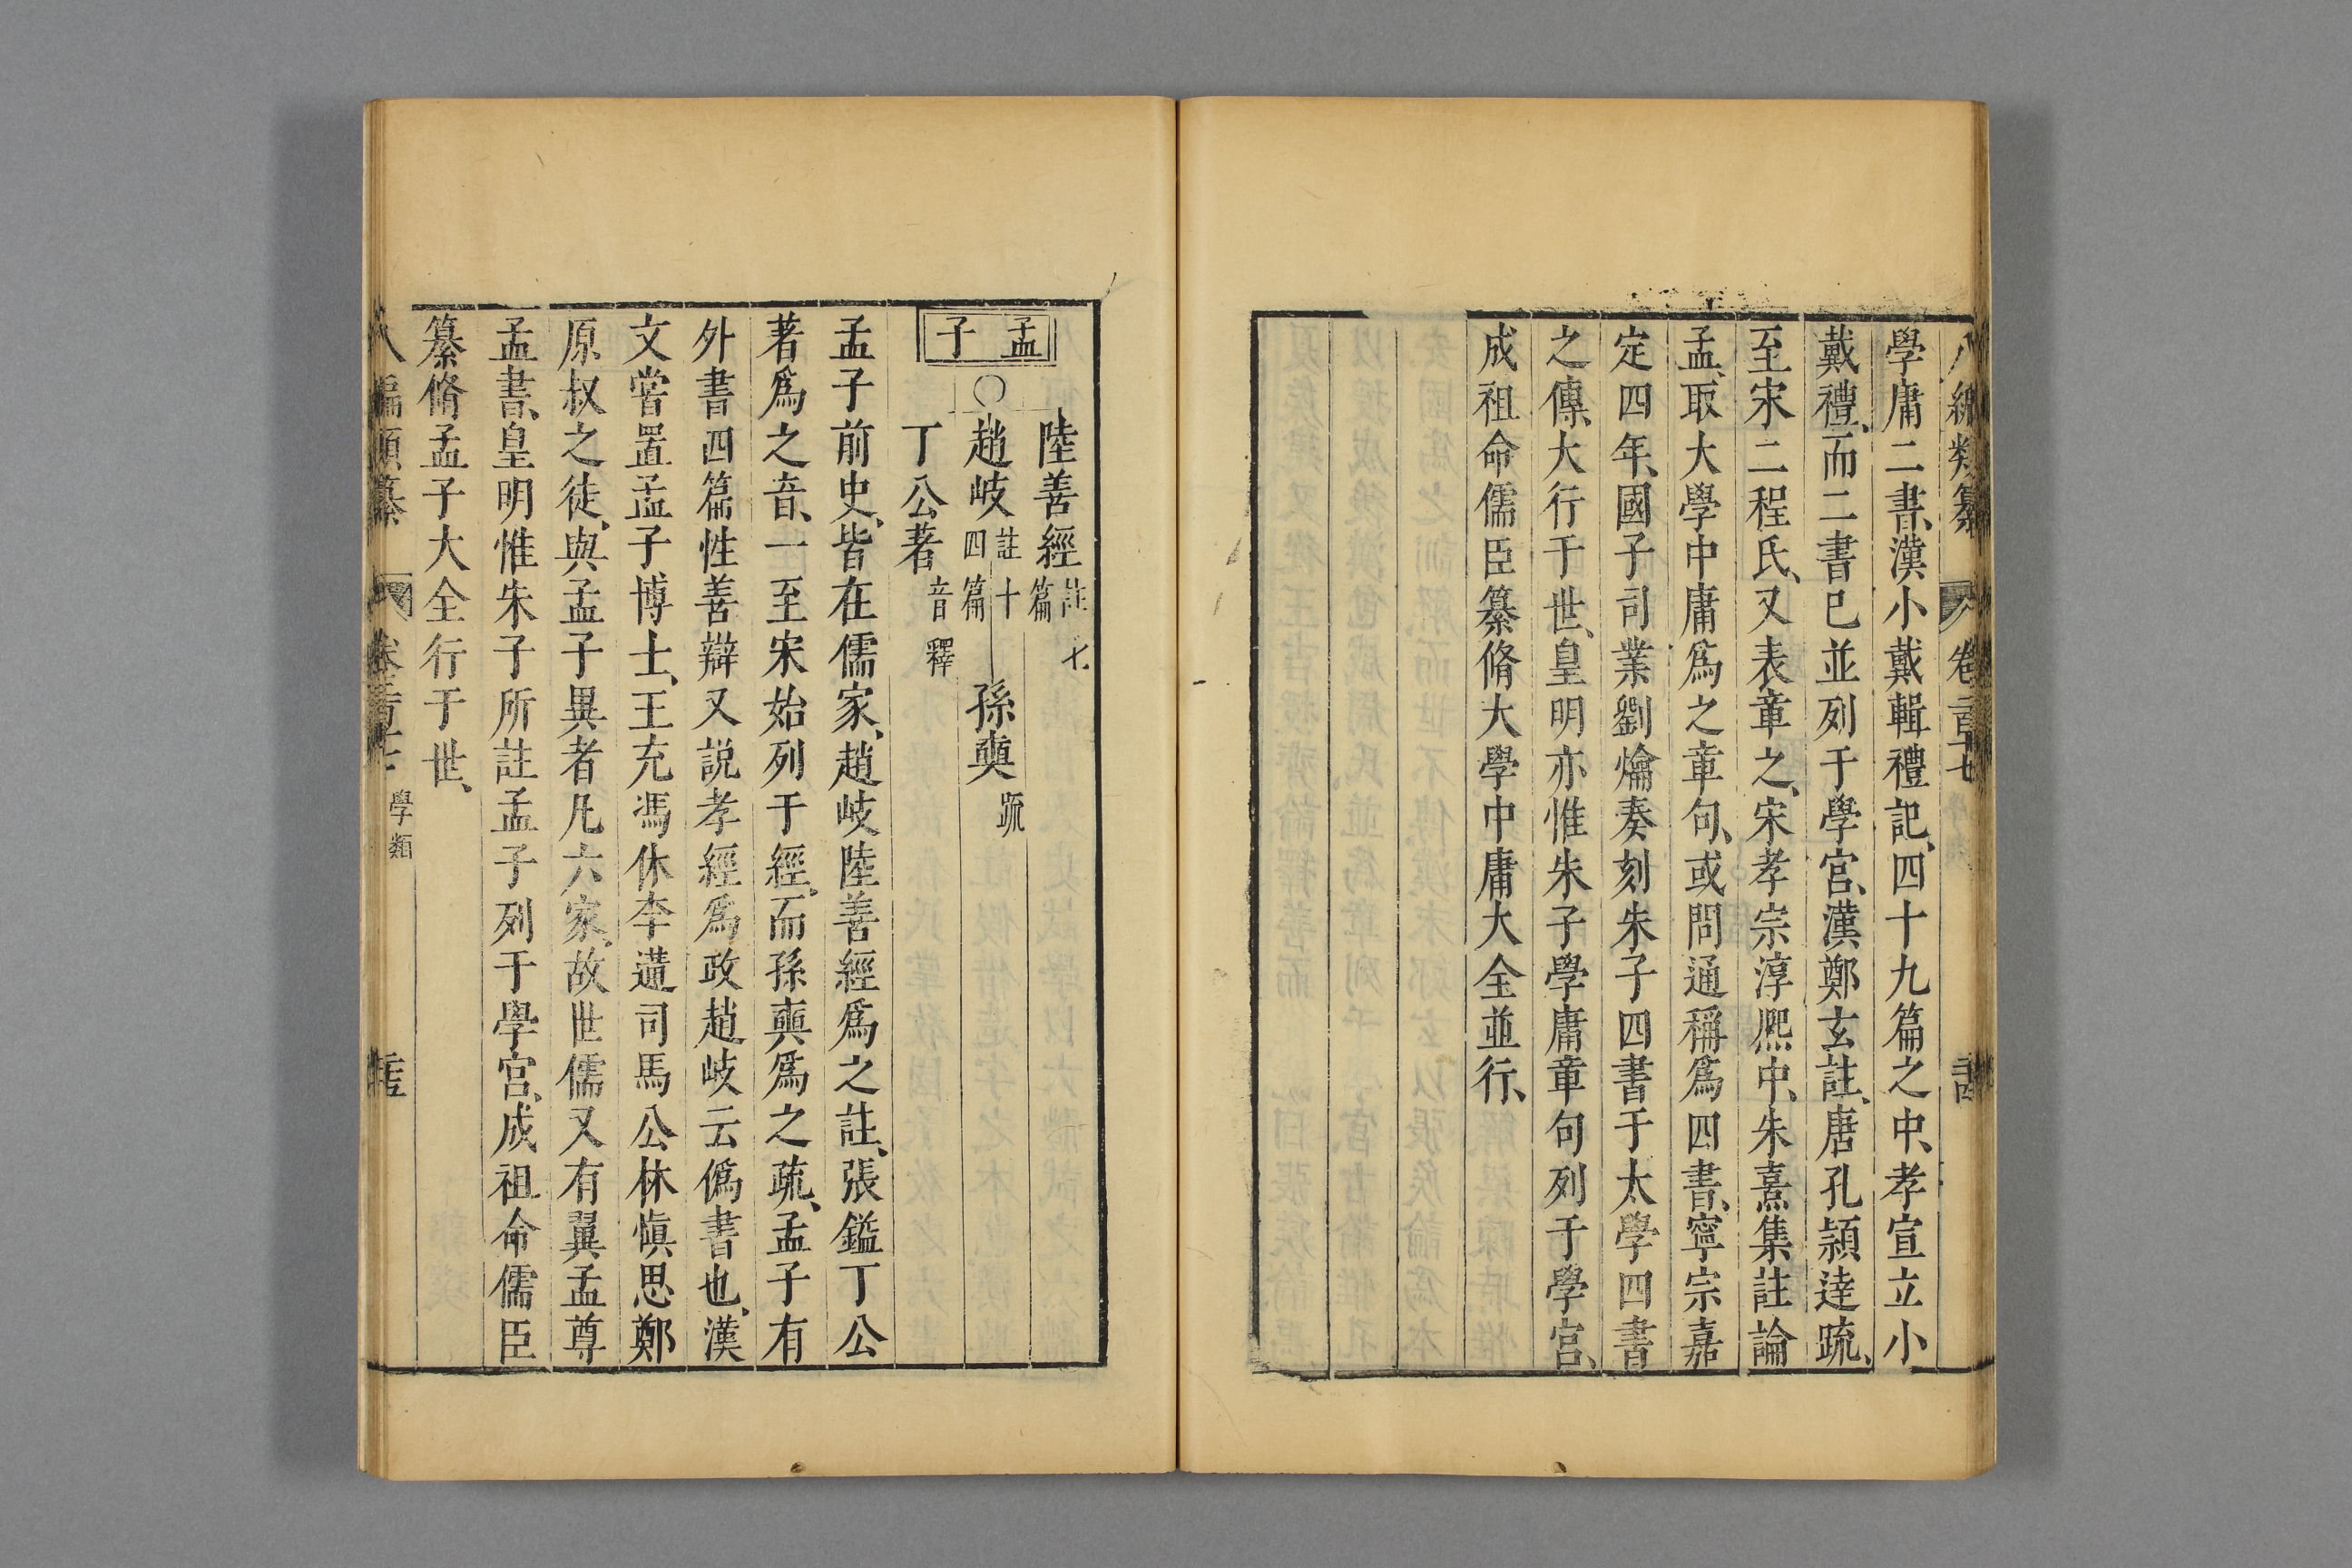 學庸二書、漢小戴輯禮記、四十九篇之中、孝宣立小
戴禮、而二書已並列于學宮、漢鄭玄註、唐孔頴逹䟽、
至宋二程氏、又表章之、宋孝宗淳熈中、朱熹集註論
孟、取大學中庸爲之章句、或問通稱爲四書、寧宗嘉
定四年、國子司業劉爚奏刻朱子四書于太學四書
之傳、大行于世、皇明亦惟朱子學庸章句列于學宮、
成祖命儒臣纂脩大學中庸大全並行、
陸善經註七篇
孟子○趙岐註十四篇 孫奭䟽
丁公著音釋
孟子前史、皆在儒家、趙岐陸善經爲之註、張鎰丁公
著爲之音、一至宋始列于經、而孫奭爲之疏、孟子有
外書四篇性善辯又説孝經爲政趙岐云僞書也、漢
文嘗置孟子博士、王充馮休李遘司馬公林愼思鄭
原叔之徒、與孟子異者凡六家、故世儒又有翼孟尊
孟書、皇明惟朱子所註孟子列于學宮、成祖命儒臣
纂脩孟子大全行于世、
學類